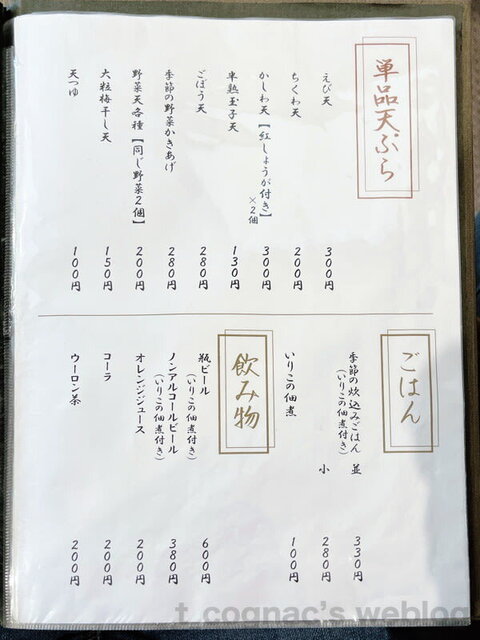 単品天ぷら
えび天 300円
ちくわ天 200円
かしわ天【紅しょうが付き】×2個 300円
半熟玉子天 130円
ごぼう天 280円
季節の野菜かきあげ 280円
野菜天各種【同じ野菜2個】 200円
大粒梅干し天 150円
天つゆ 100円
ごはん
季節の炊込みごはん 並 330円
(いりこの佃煮付き) 小 280円
いりこの佃煮 100円
飲み物
瓶ビール 600円
(いりこの佃煮付き)
ノンアルコールビール 380円
(いりこの佃煮付き)
オレンジジュース 200円
コーラ 200円
ウーロン茶 200円
t_cognac's weblog